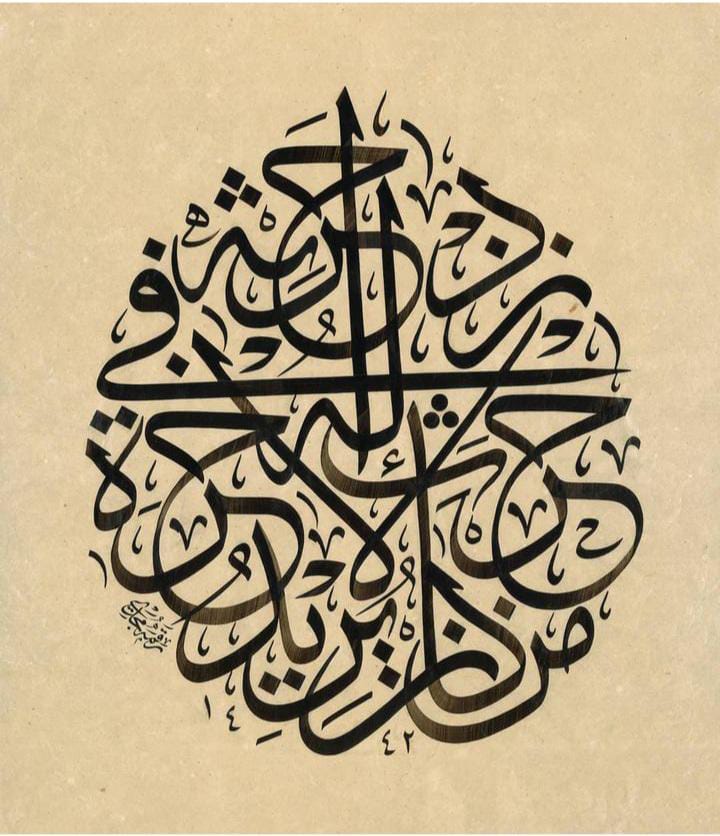 من كان يريد حرث الآخرة نزد له في حرثه
١٤٤٢